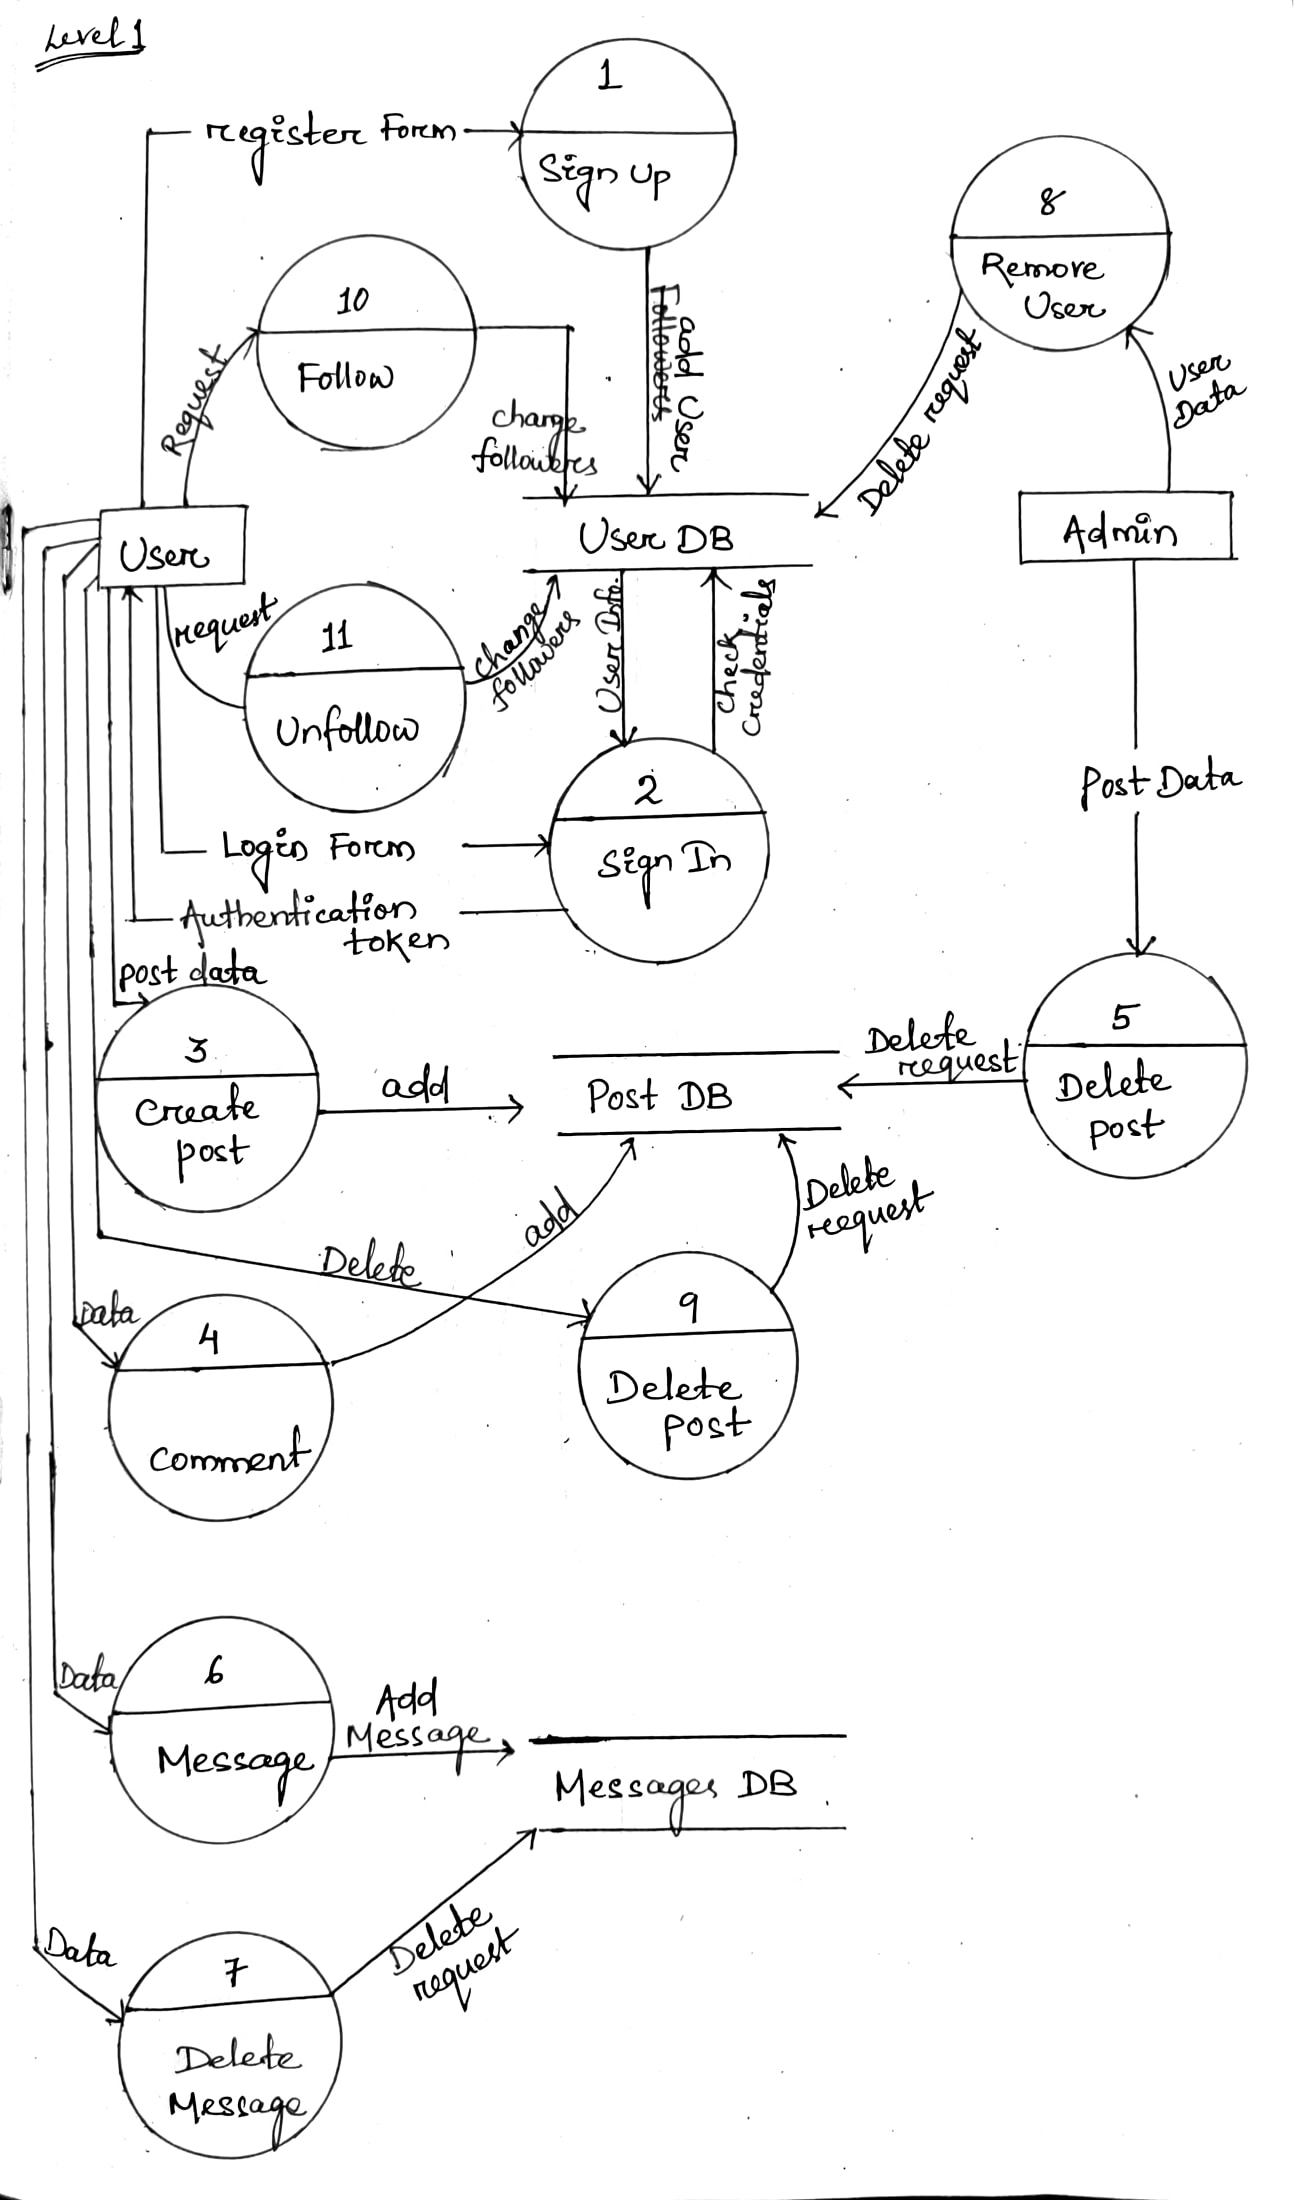 Level 1
1
register Form
Sign Up
8
Remove
User
10
Follow
Request
add User
change
followers
Delete request
User
Data
User
User DB
Admin
request
11
Unfollow
change
followers
User Info.
check
credentials
2
Sign In
Post Data
Login Form
Authentication
token
post data
3
Create
post
add
Post DB
Delete
request
5
Delete
post
Delete
add
Delete
request
Data
4
Comment
9
Delete
post
Data
6
Message
Add
Message
Messages DB
Data
7
Delete
Message
Delete
request